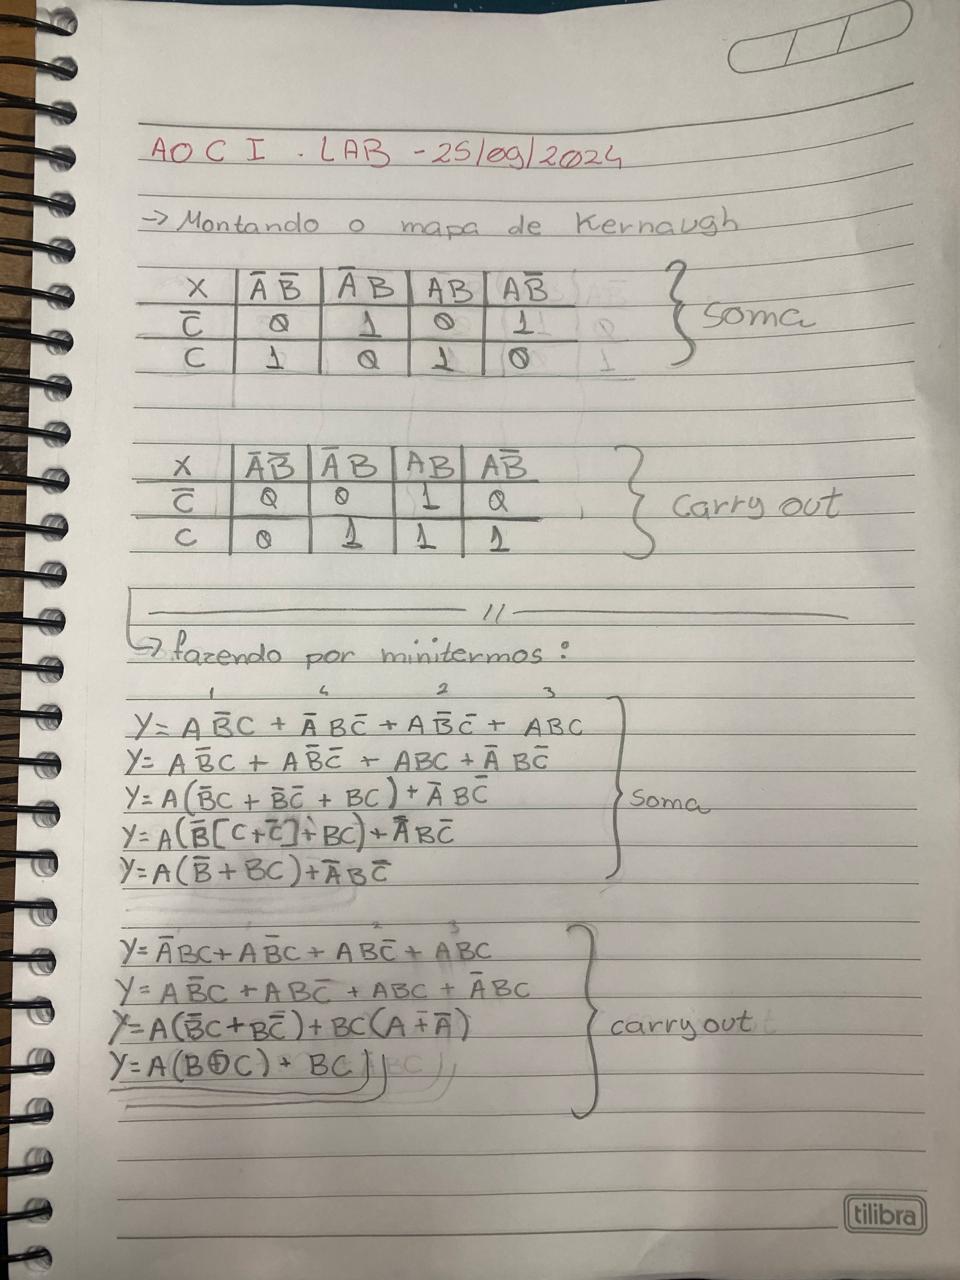 AOC I . LAB - 25/09/2024
→ Montando o mapa de Kernaugh
X | A̅ B̅ | A̅ B | AB | AB̅
C̅ | 0 | 1 | 0 | 1
C | 1 | 0 | 1 | 0
Soma
X | A̅B̅ | A̅ B | AB | AB̅
C̅ | 0 | 0 | 1 | 0
C | 0 | 1 | 1 | 1
Carry out
//
→ fazendo por minitermos:
1 4 2 3
Y= A B̅ C + A̅ B C̅ + A B̅ C̅ + ABC
Y= A B̅ C + A B̅ C̅ + ABC + A̅ B C̅
Y= A(B̅C + B̅C̅ + BC) + A̅ B C̅
Y= A(B̅[C+C̅]+BC)+A̅BC̅
Y= A(B̅+BC)+A̅BC̅
Soma
2 3
Y= A̅BC+AB̅C+ABC̅+ABC
Y= AB̅C+ABC̅+ABC+A̅BC
Y= A(B̅C+BC̅)+BC(A+A̅)
Y= A(B⊕C)+BC
carry out
tilibra